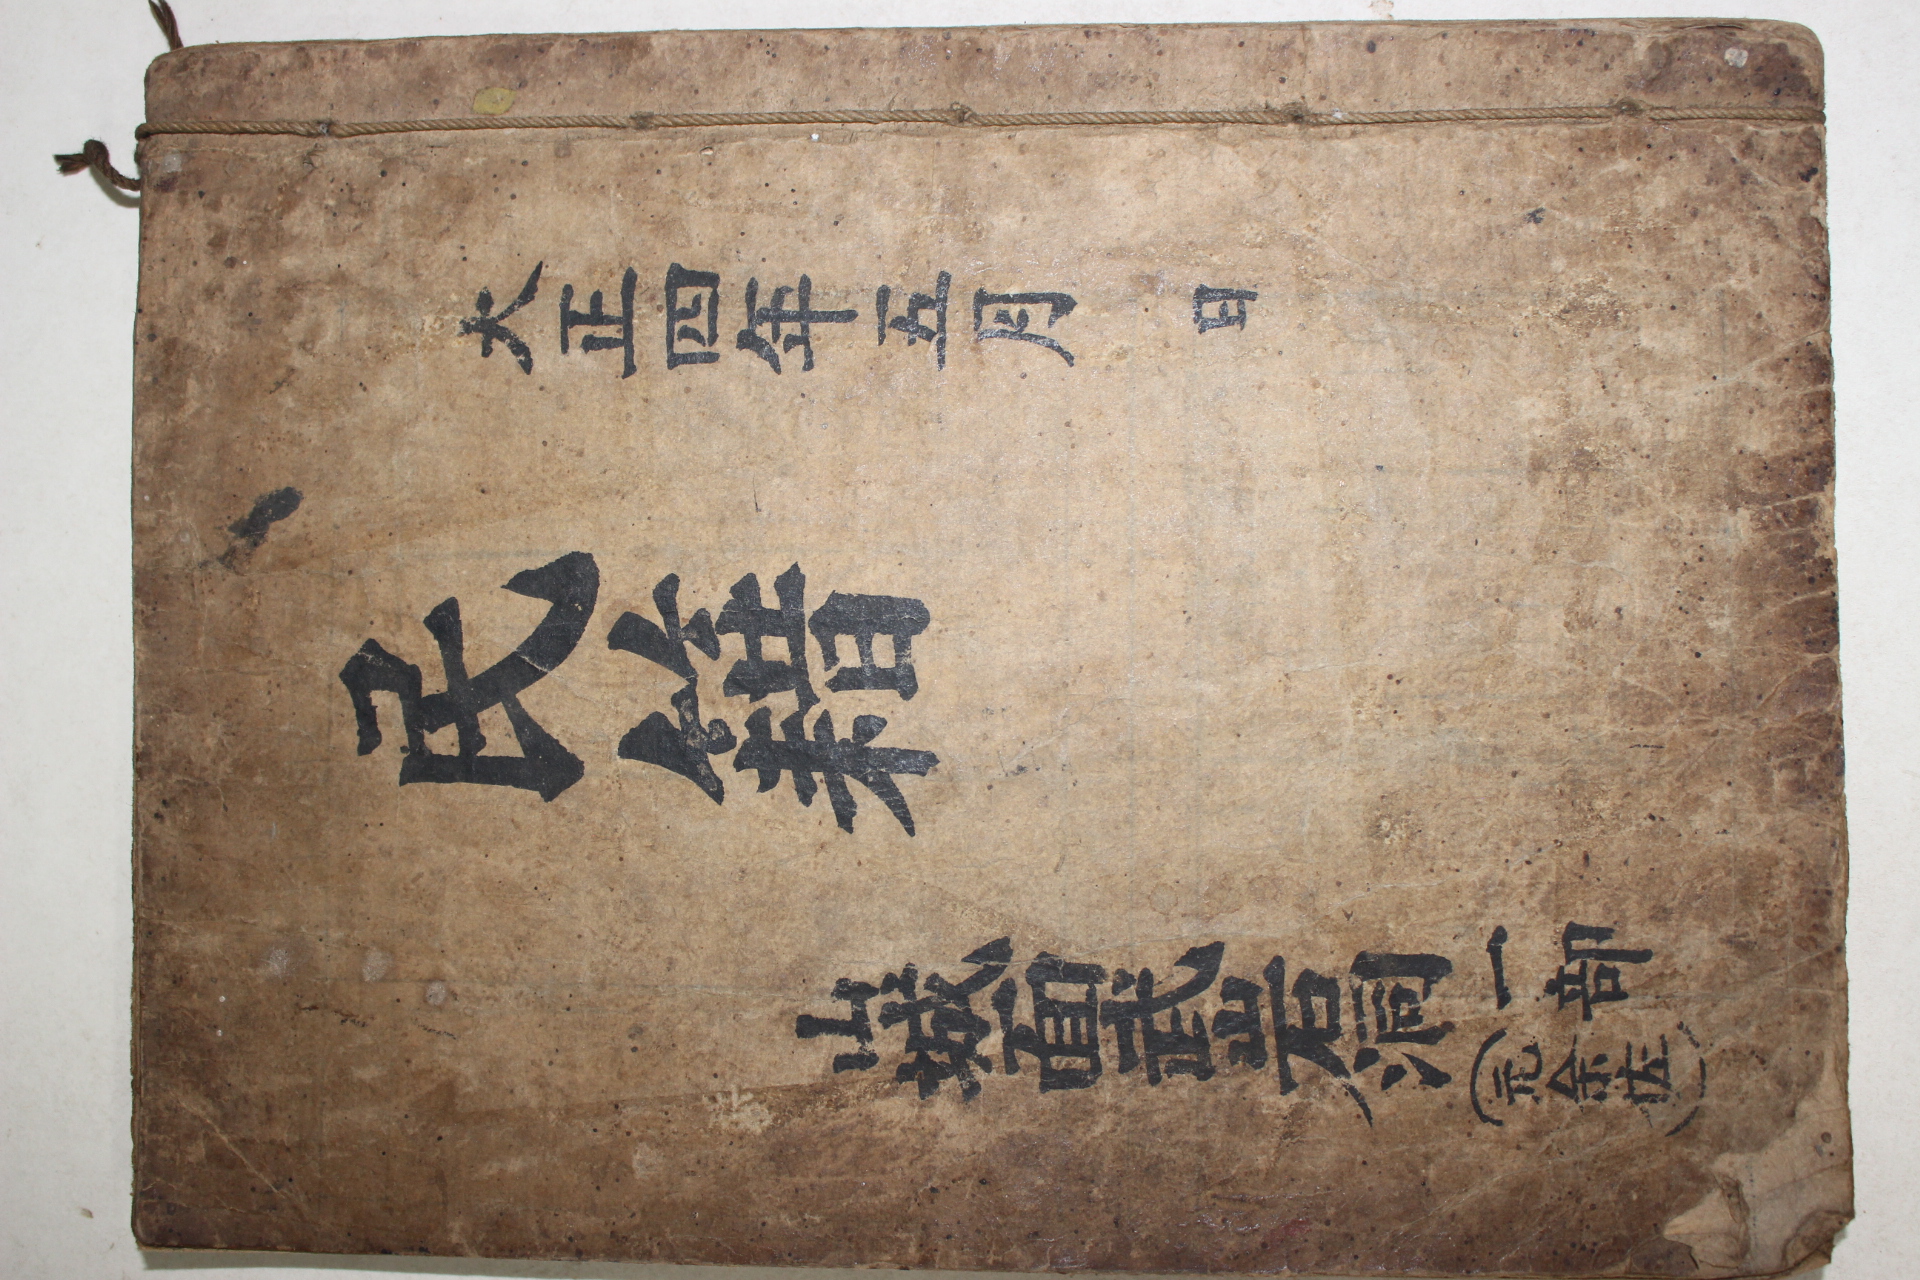 大正四年五月　日
民籍
山城面武岩洞一部
(元余佐)